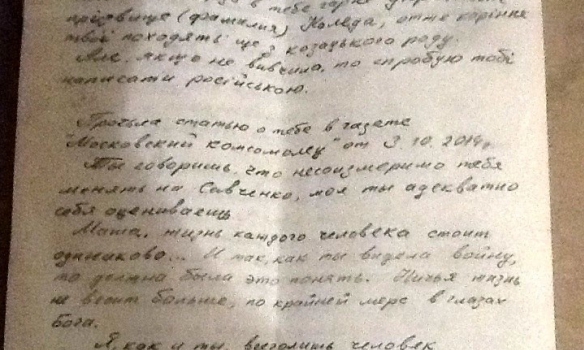 в тебе гарне
прізвище (фамилия) Коледа, отже коріння
твої походять ще з козацького роду.
Але, якщо не вивчила, то спробую тобі
написати російською.
Прочла статью о тебе в газете
"Московский комсомолец" от 3.10.2014г.
Ты говоришь, что несоизмеримо тебя
менять на Савченко, мол ты адекватно
себя оцениваешь.
Маша, жизнь каждого человека стоит
одинаково... И так, как ты видела войну,
то должна была это понять. Ничья жизнь
не весит больше, по крайней мере в глазах
Бога.
Я, как и ты, человек